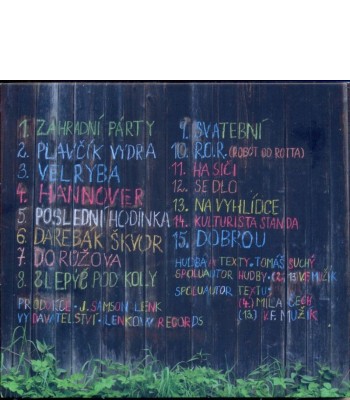 1. ZAHRADNÍ PÁRTY
2. PLAVČÍK VYDRA
3. VELRYBA
4. HANNOVER
5. POSLEDNÍ HODINKA
6. DAREBÁK ŠKVOR
7. DO RŮŽOVA
8. SLEPÝŠ POD KOLY
PRODUKCE - J. SAMSON LENK
VYDAVATELSTVÍ - LENKOW RECORDS
9. SVATEBNÍ
10. R.O.R. (ROBOT OD ROTTA)
11. HASIČI
12. SEDLO
13. NA VYHLÍDCE
14. KULTURISTA STANDA
15. DOBROU
HUDBA A TEXTY - TOMÁŠ SUCHÝ
SPOLUAUTOR HUDBY - MUZIK
SPOLUAUTOR TEXTU:
(4.) MILLA ČECH
(13.) V.F. MUZIK